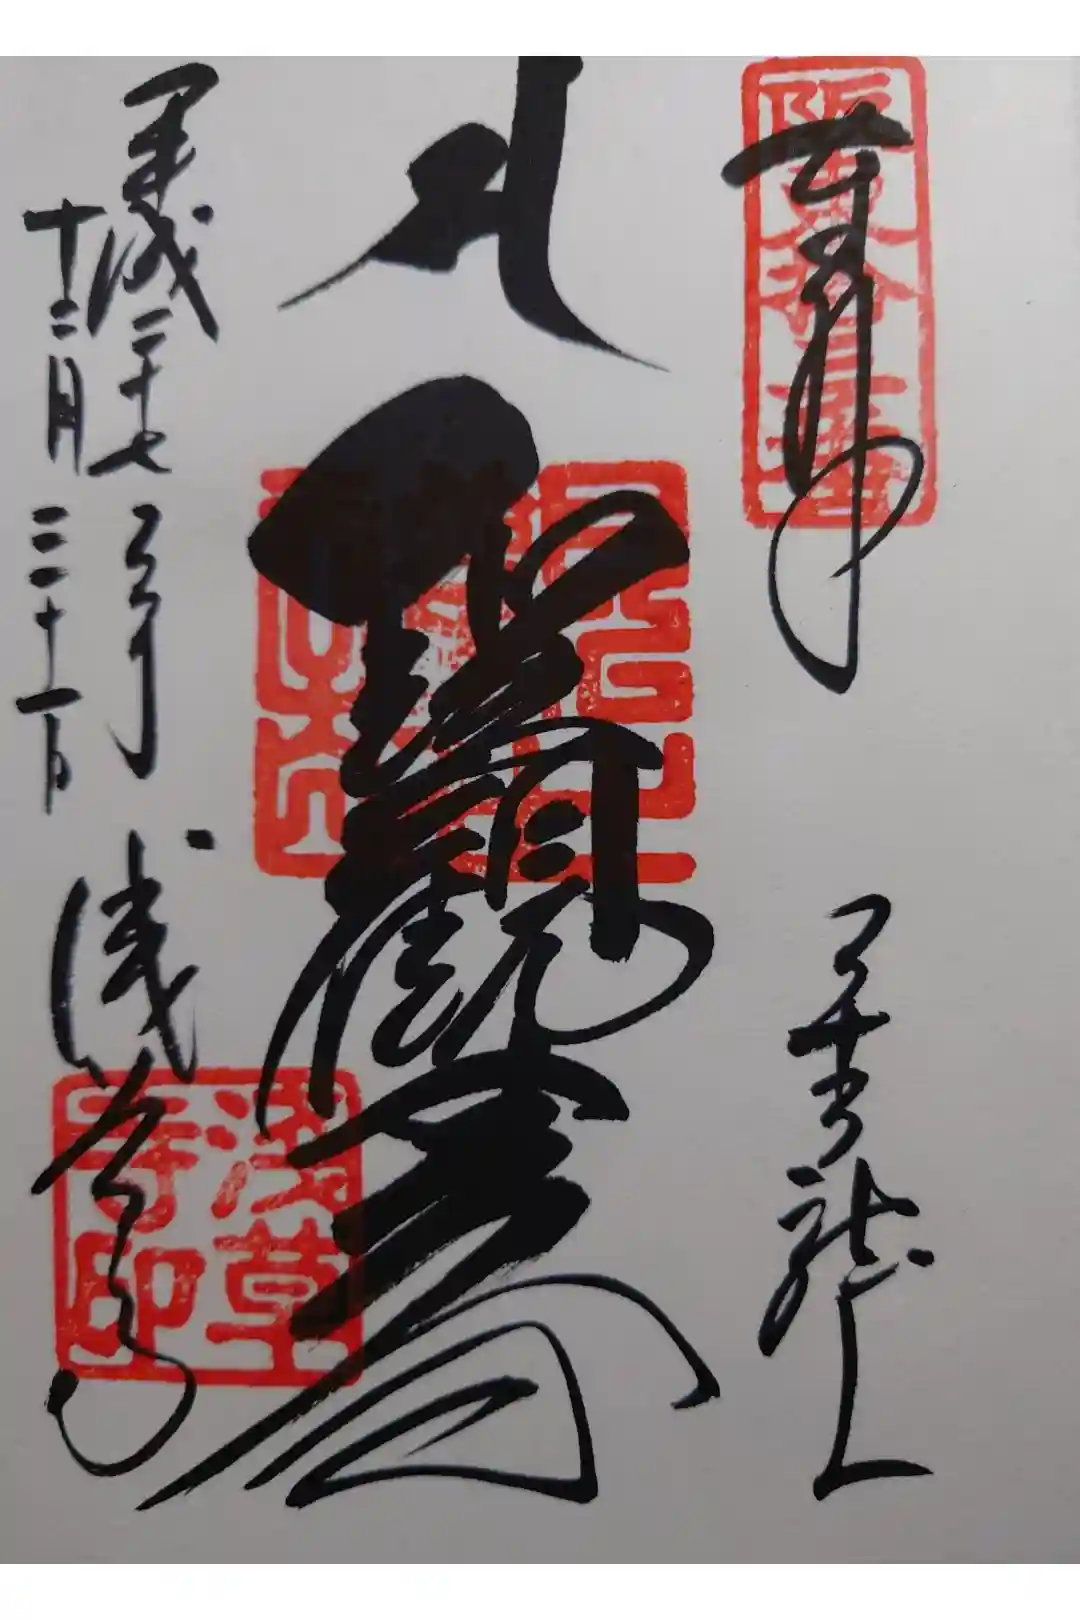 奉拝
阪東拾三番
金龍山
聖観世音
平成二十七年
十二月二十一日
浅草寺
浅草寺印